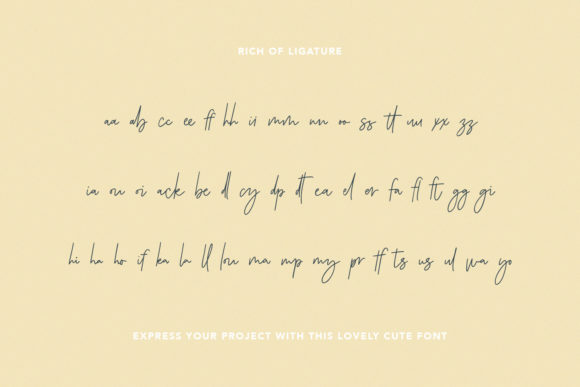 RICH OF LIGATURE
aa ab cc ee ff hh ii mm nn oo ss tt uu xx zz
ia ou oi ack be dl cy dp dt ea el er fa fl ft gg gi
hi ha ho if ka la ll lou ma mp my pr tf ts us ul wa yo
EXPRESS YOUR PROJECT WITH THIS LOVELY CUTE FONT